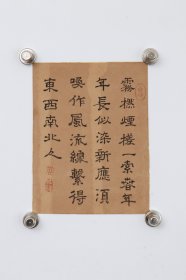 霧撚煙搓一索春年
年長似染新應須
喚作風流線繫得
東西南北人